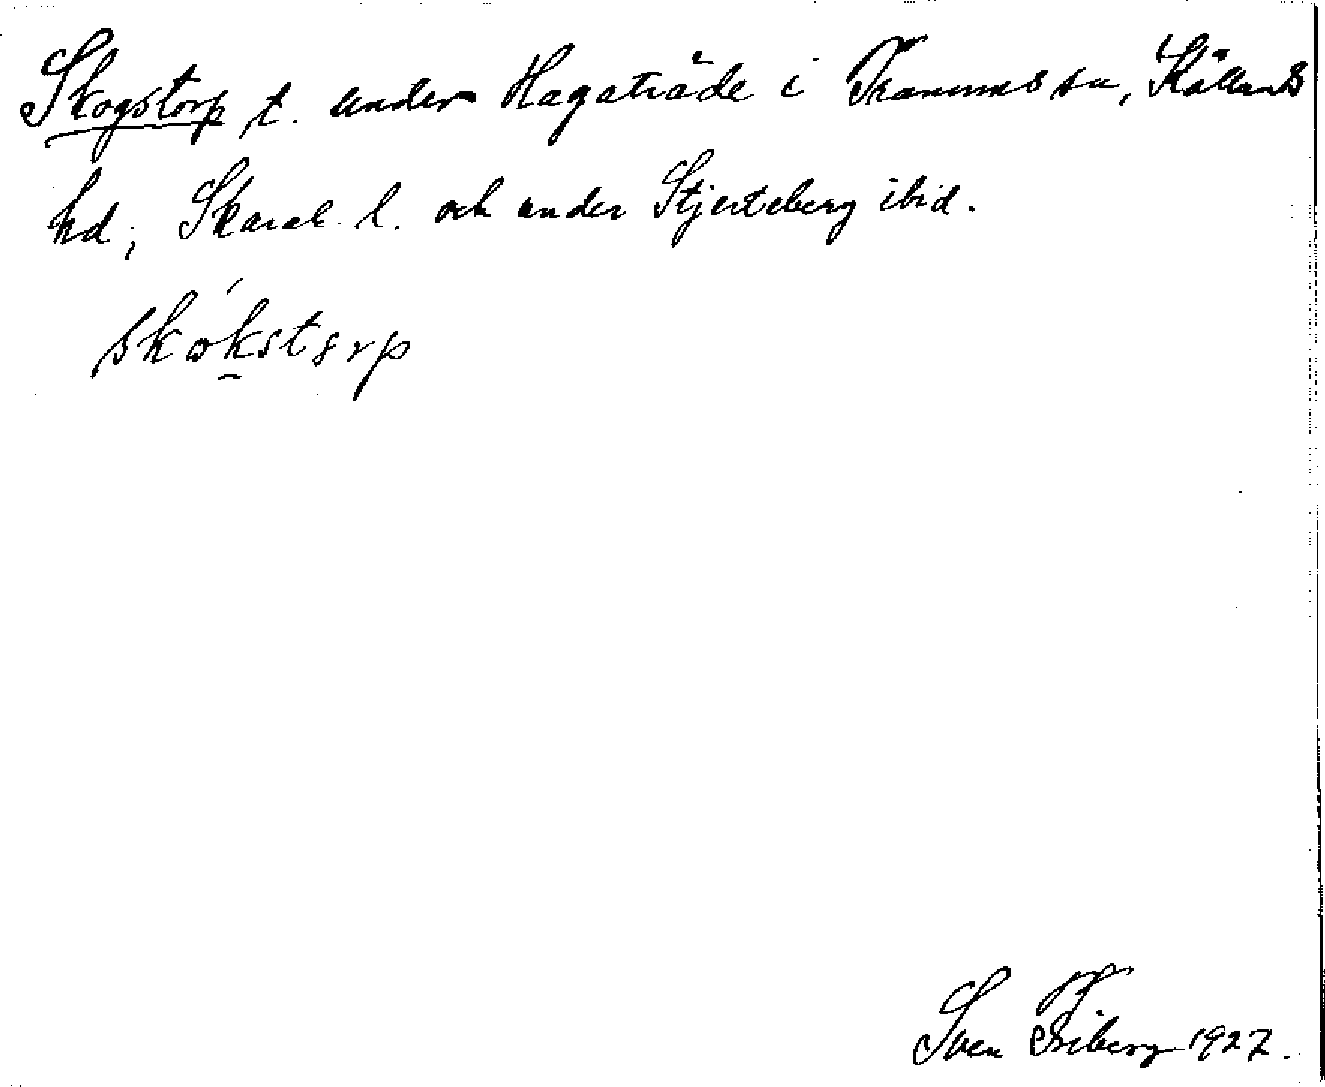 Skogstorp t. under Hagaträde i Tranums sn, Kållands
hd, Skarab. l. och under Stjerteberg ibid.
skókstɜrp
Sven Friberg 1927.